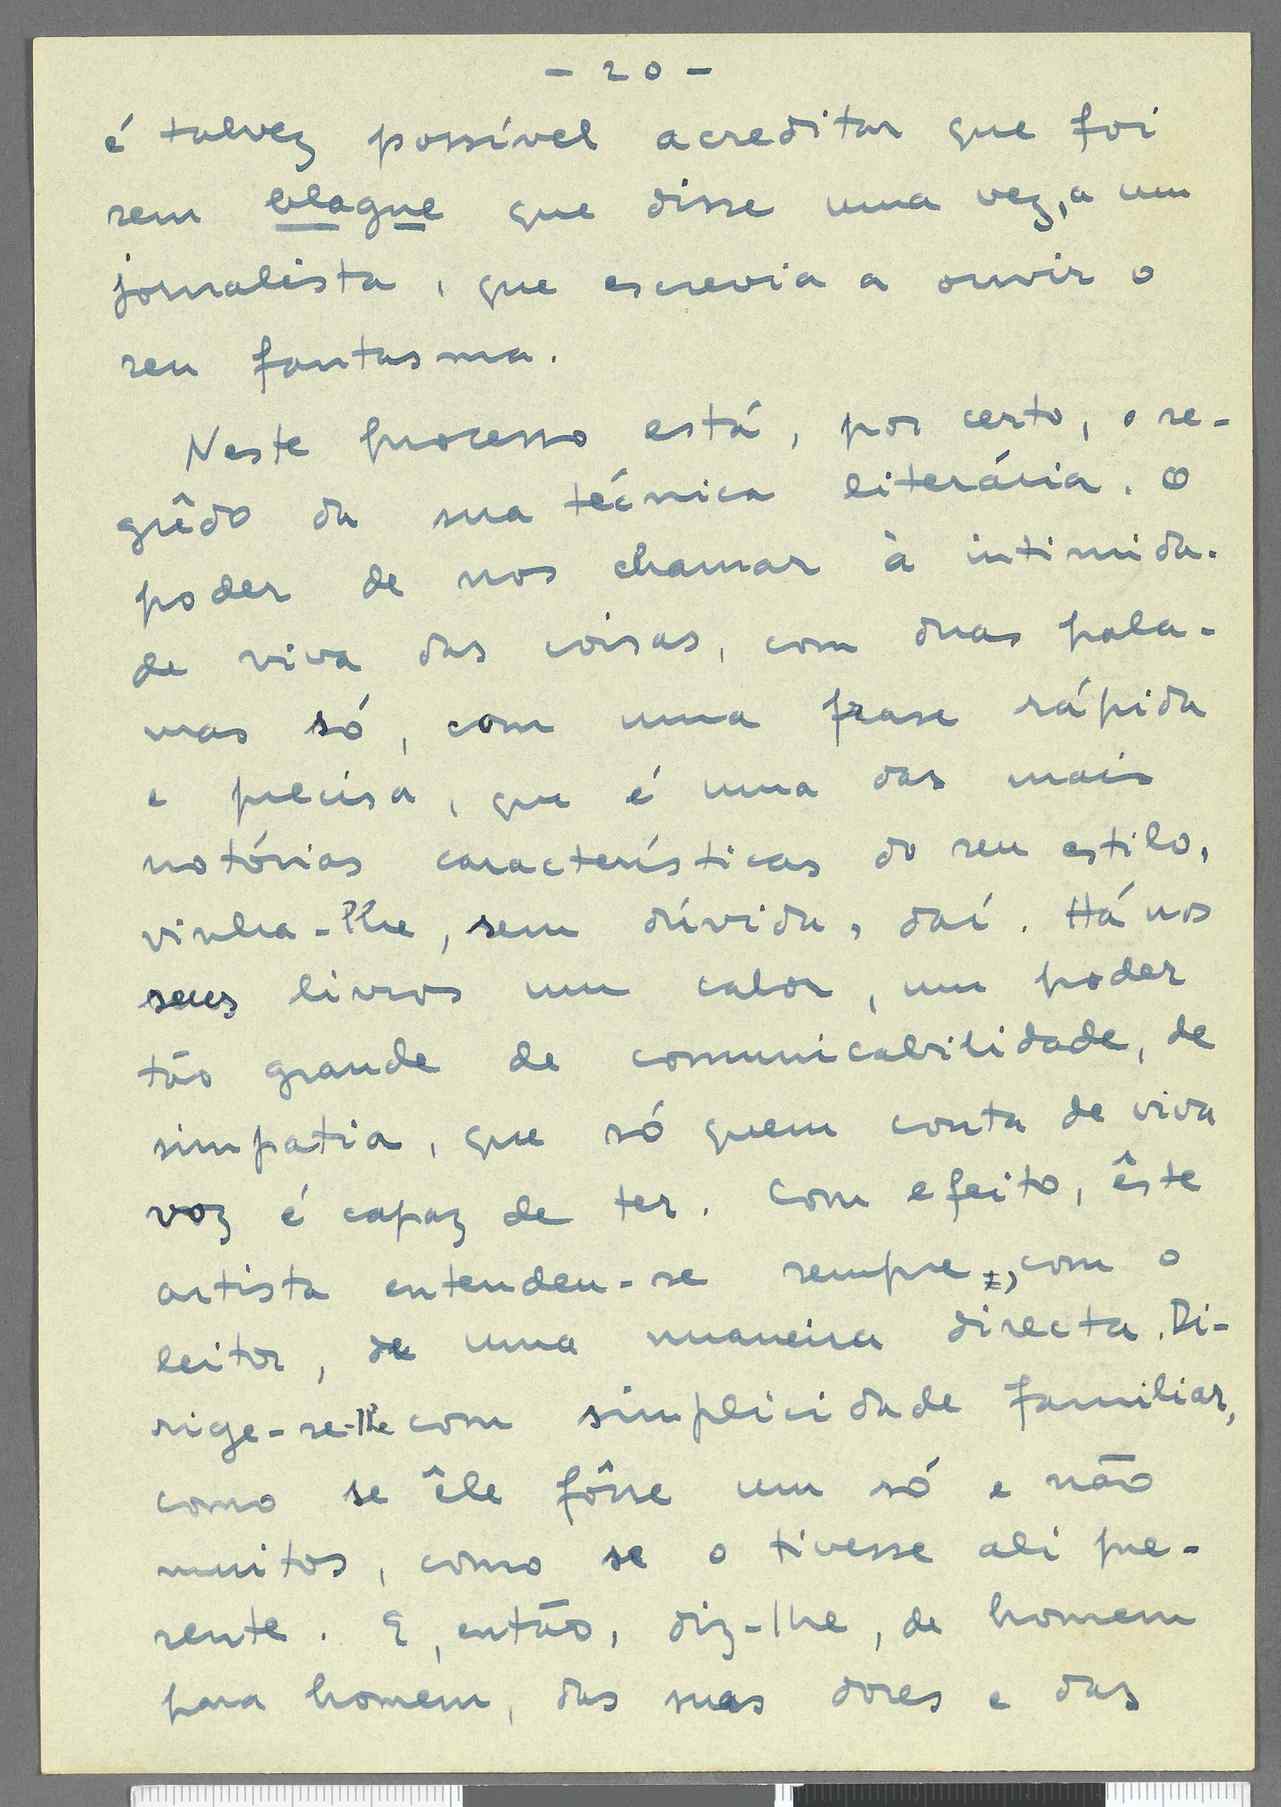 - 20 -
é talvez possível acreditar que foi
sem blague que disse uma vez, a um
jornalista, que escrevia a ouvir o
seu fantasma.
Neste processo está, por certo, o se-
grêdo da sua técnica literária. O
poder de nos chamar à intimida-
de viva das coisas, com duas pala-
vras só, com uma frase rápida
e precisa, que é uma das mais
notórias características do seu estilo,
vinha-lhe, sem dúvida, daí. Há nos
seus livros um calor, um poder
tão grande de comunicabilidade, de
simpatia, que só quem conta de viva
voz é capaz de ter. Com efeito, êste
artista entendeu-se sempre, com o
leitor, de uma maneira directa. Di-
rige-se-lhe com simplicidade familiar,
como se êle fôsse um só e não
muitos, como se o tivesse ali pre-
sente. E, então, diz-lhe, de homem
para homem, das suas dores e das